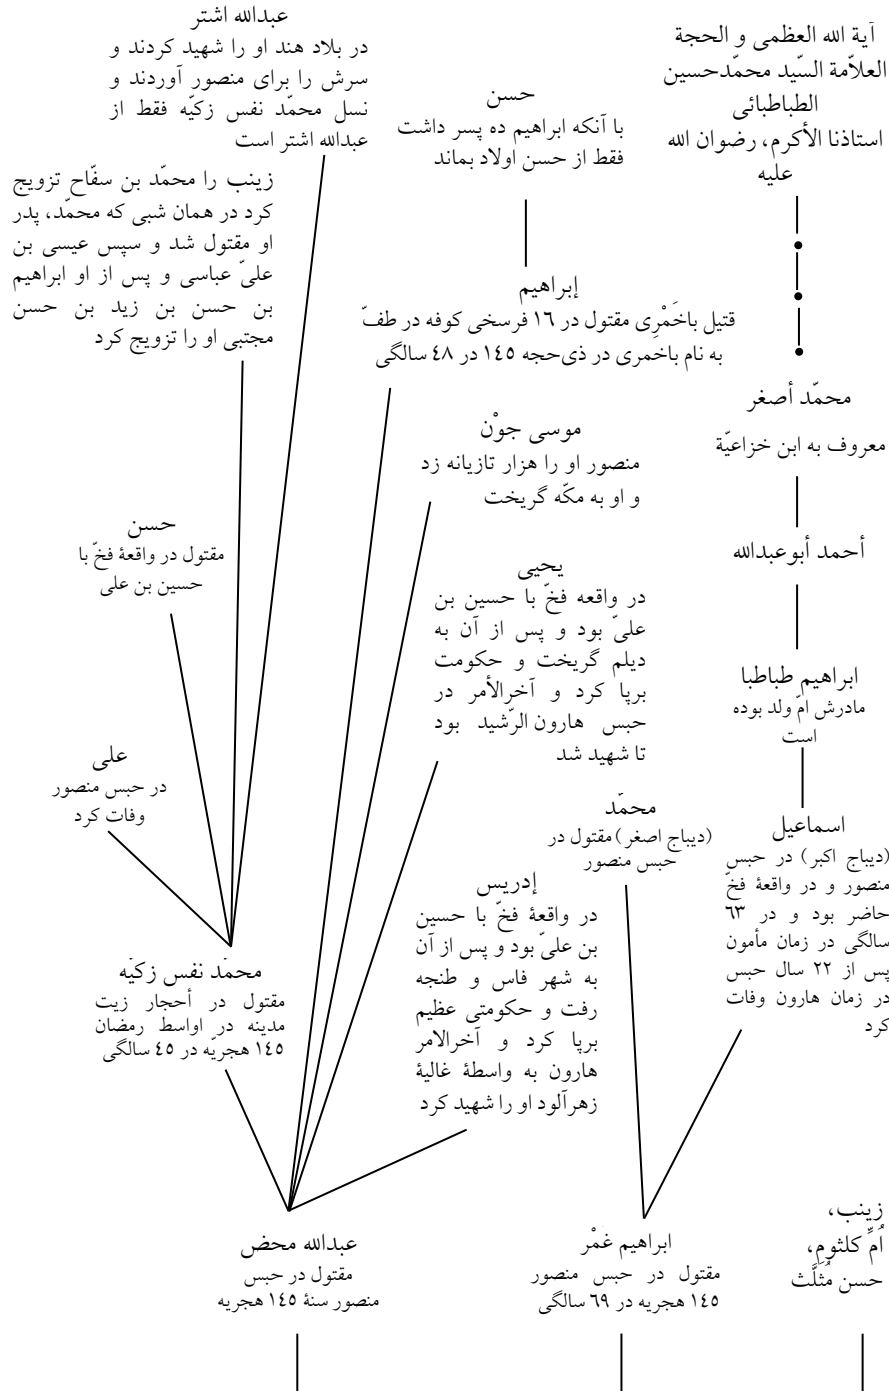 آية الله العظمى و الحجة
العلاّمة السّيد محمّدحسين
الطباطبائى
استاذنا الأكرم، رضوان الله
عليه
محمّد أصغر
معروف به ابن خزاعيّة
أحمد أبوعبدالله
ابراهيم طباطبا
مادرش امّ ولد بوده
است
اسماعيل
(ديباج اكبر) در حبس
منصور و در واقعۀ فخّ
حاضر بود و در ٦٣
سالگى در زمان مأمون
پس از ٢٢ سال حبس
در زمان هارون وفات
كرد
زينب،
اُمِّ كلثومِ،
حسن مُثلَّث
حسن
با آنكه ابراهيم ده پسر داشت
فقط از حسن اولاد بماند
إبراهيم
قتيل باخَمْرِى مقتول در ١٦ فرسخى كوفه در طفّ
به نام باخمرى در ذى‌حجه ١٤٥ در ٤٨ سالگى
موسى جوْن
منصور او را هزار تازيانه زد
و او به مكّه گريخت
يحيى
در واقعه فخّ با حسين بن
علىّ بود و پس از آن به
ديلم گريخت و حكومت
برپا كرد و آخرالأمر در
حبس هارون الرّشيد بود
تا شهيد شد
محمّد
(ديباج اصغر)مقتول در
حبس منصور
إدريس
در واقعۀ فخّ با حسين
بن علىّ بود و پس از آن
به شهر فاس و طنجه
رفت و حكومتى عظيم
برپا كرد و آخرالامر
هارون به واسطۀ غاليۀ
زهرآلود او را شهيد كرد
ابراهيم غَمْر
مقتول در حبس منصور
١٤٥ هجريه در ٦٩ سالگى
عبدالله اشتر
در بلاد هند او را شهيد كردند و
سرش را براى منصور آوردند و
نسل محمّد نفس زكيّه فقط از
عبدالله اشتر است
زينب را محمّد بن سفّاح تزويج
كرد در همان شبى كه محمّد، پدر
او مقتول شد و سپس عيسى بن
علىّ عباسى و پس از او ابراهيم
بن حسن بن زيد بن حسن
مجتبى او را تزويج كرد
حسن
مقتول در واقعۀ فخّ با
حسين بن على
على
در حبس منصور
وفات كرد
محمّد نفس زكيّه
مقتول در أحجار زيت
مدينه در اواسط رمضان
١٤٥ هجريّه در ٤٥ سالگى
عبدالله محض
مقتول در حبس
منصور سنۀ ١٤٥ هجريه